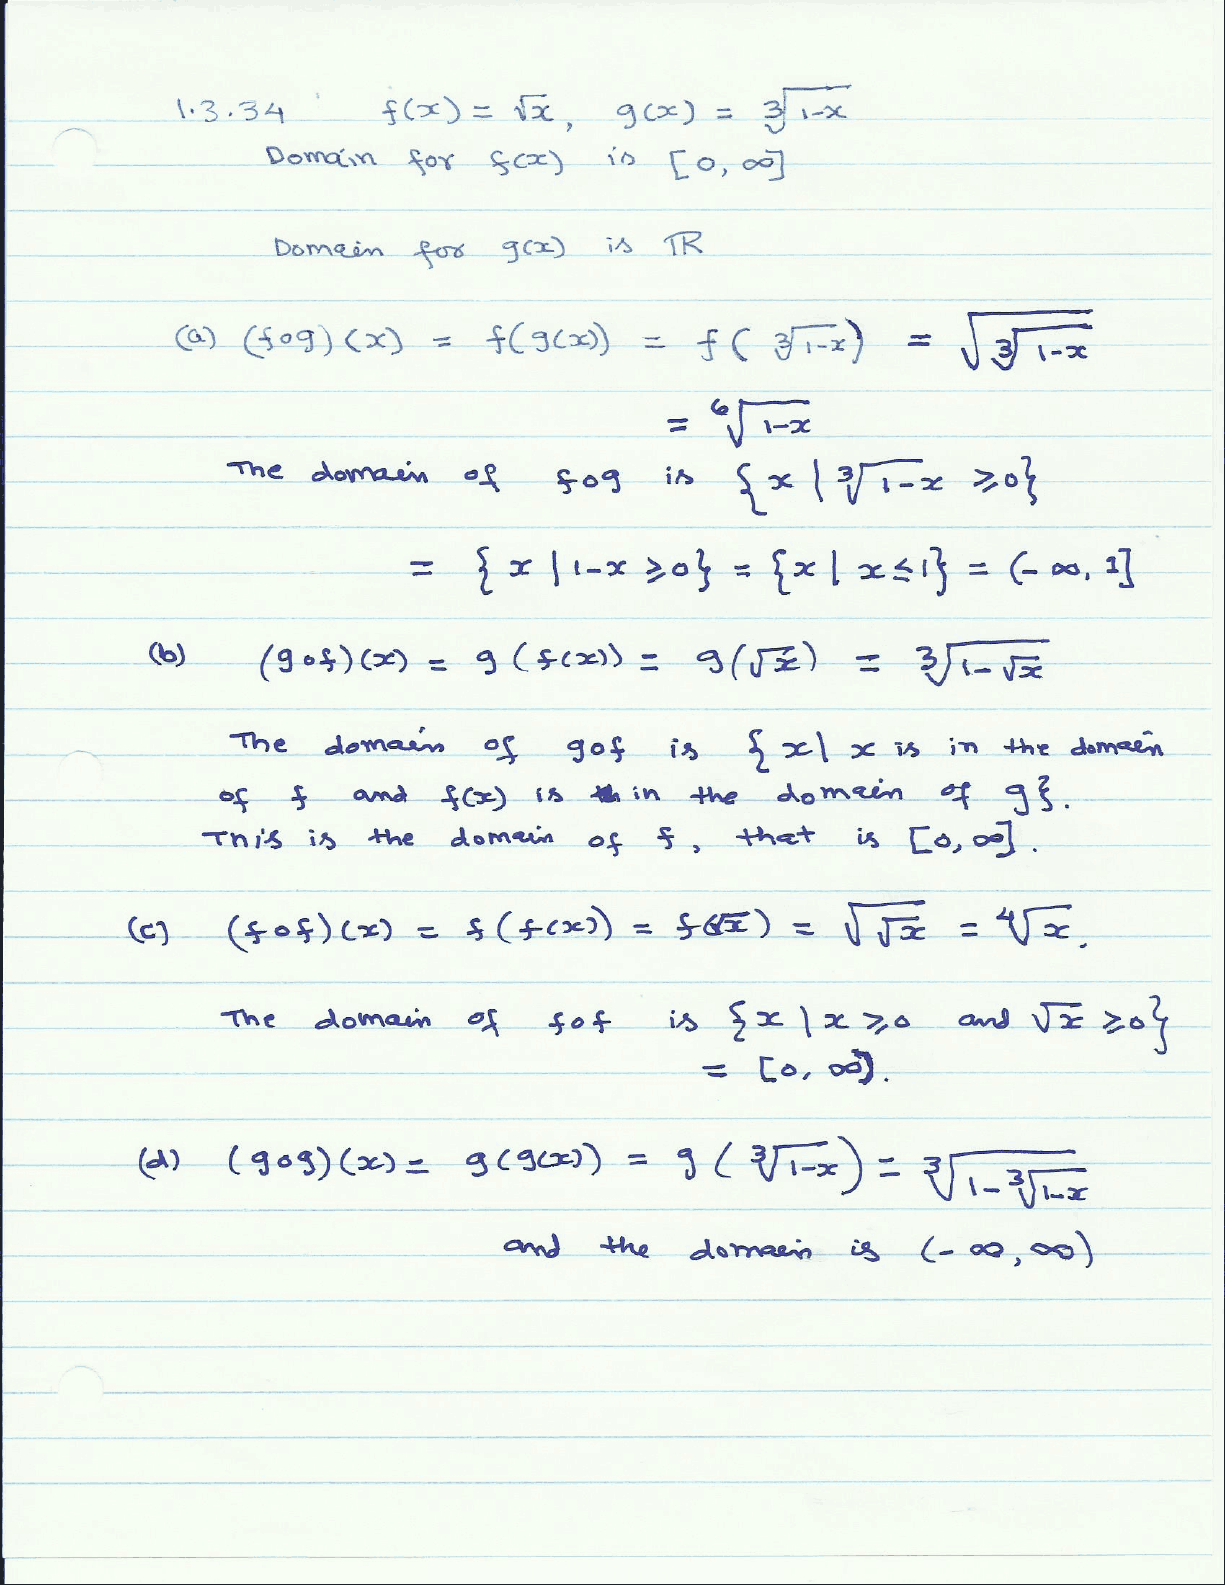 1.3.34 f(x) = √x, g(x) = ∛(1-x)
Domain for f(x) is [0, ∞]
Domain for g(x) is ℝ
(a) (fog)(x) = f(g(x)) = f(∛(1-x)) = √(∛(1-x))
= ⁶√(1-x)
The domain of fog is {x | ∛(1-x) ⩾ 0}
= {x | 1-x ⩾ 0} = {x | x ≤ 1} = (-∞, 1]
(b) (gof)(x) = g(f(x)) = g(√x) = ∛(1-√x)
The domain of gof is {x | x is in the domain
of f and f(x) is in the domain of g}.
This is the domain of f, that is [0, ∞].
(c) (fof)(x) = f(f(x)) = f(√x) = √(√x) = ∜x.
The domain of fof is {x | x ⩾ 0 and √x ⩾ 0}
= [0, ∞).
(d) (gog)(x) = g(g(x)) = g(∛(1-x)) = ∛(1-∛(1-x))
and the domain is (-∞, ∞)